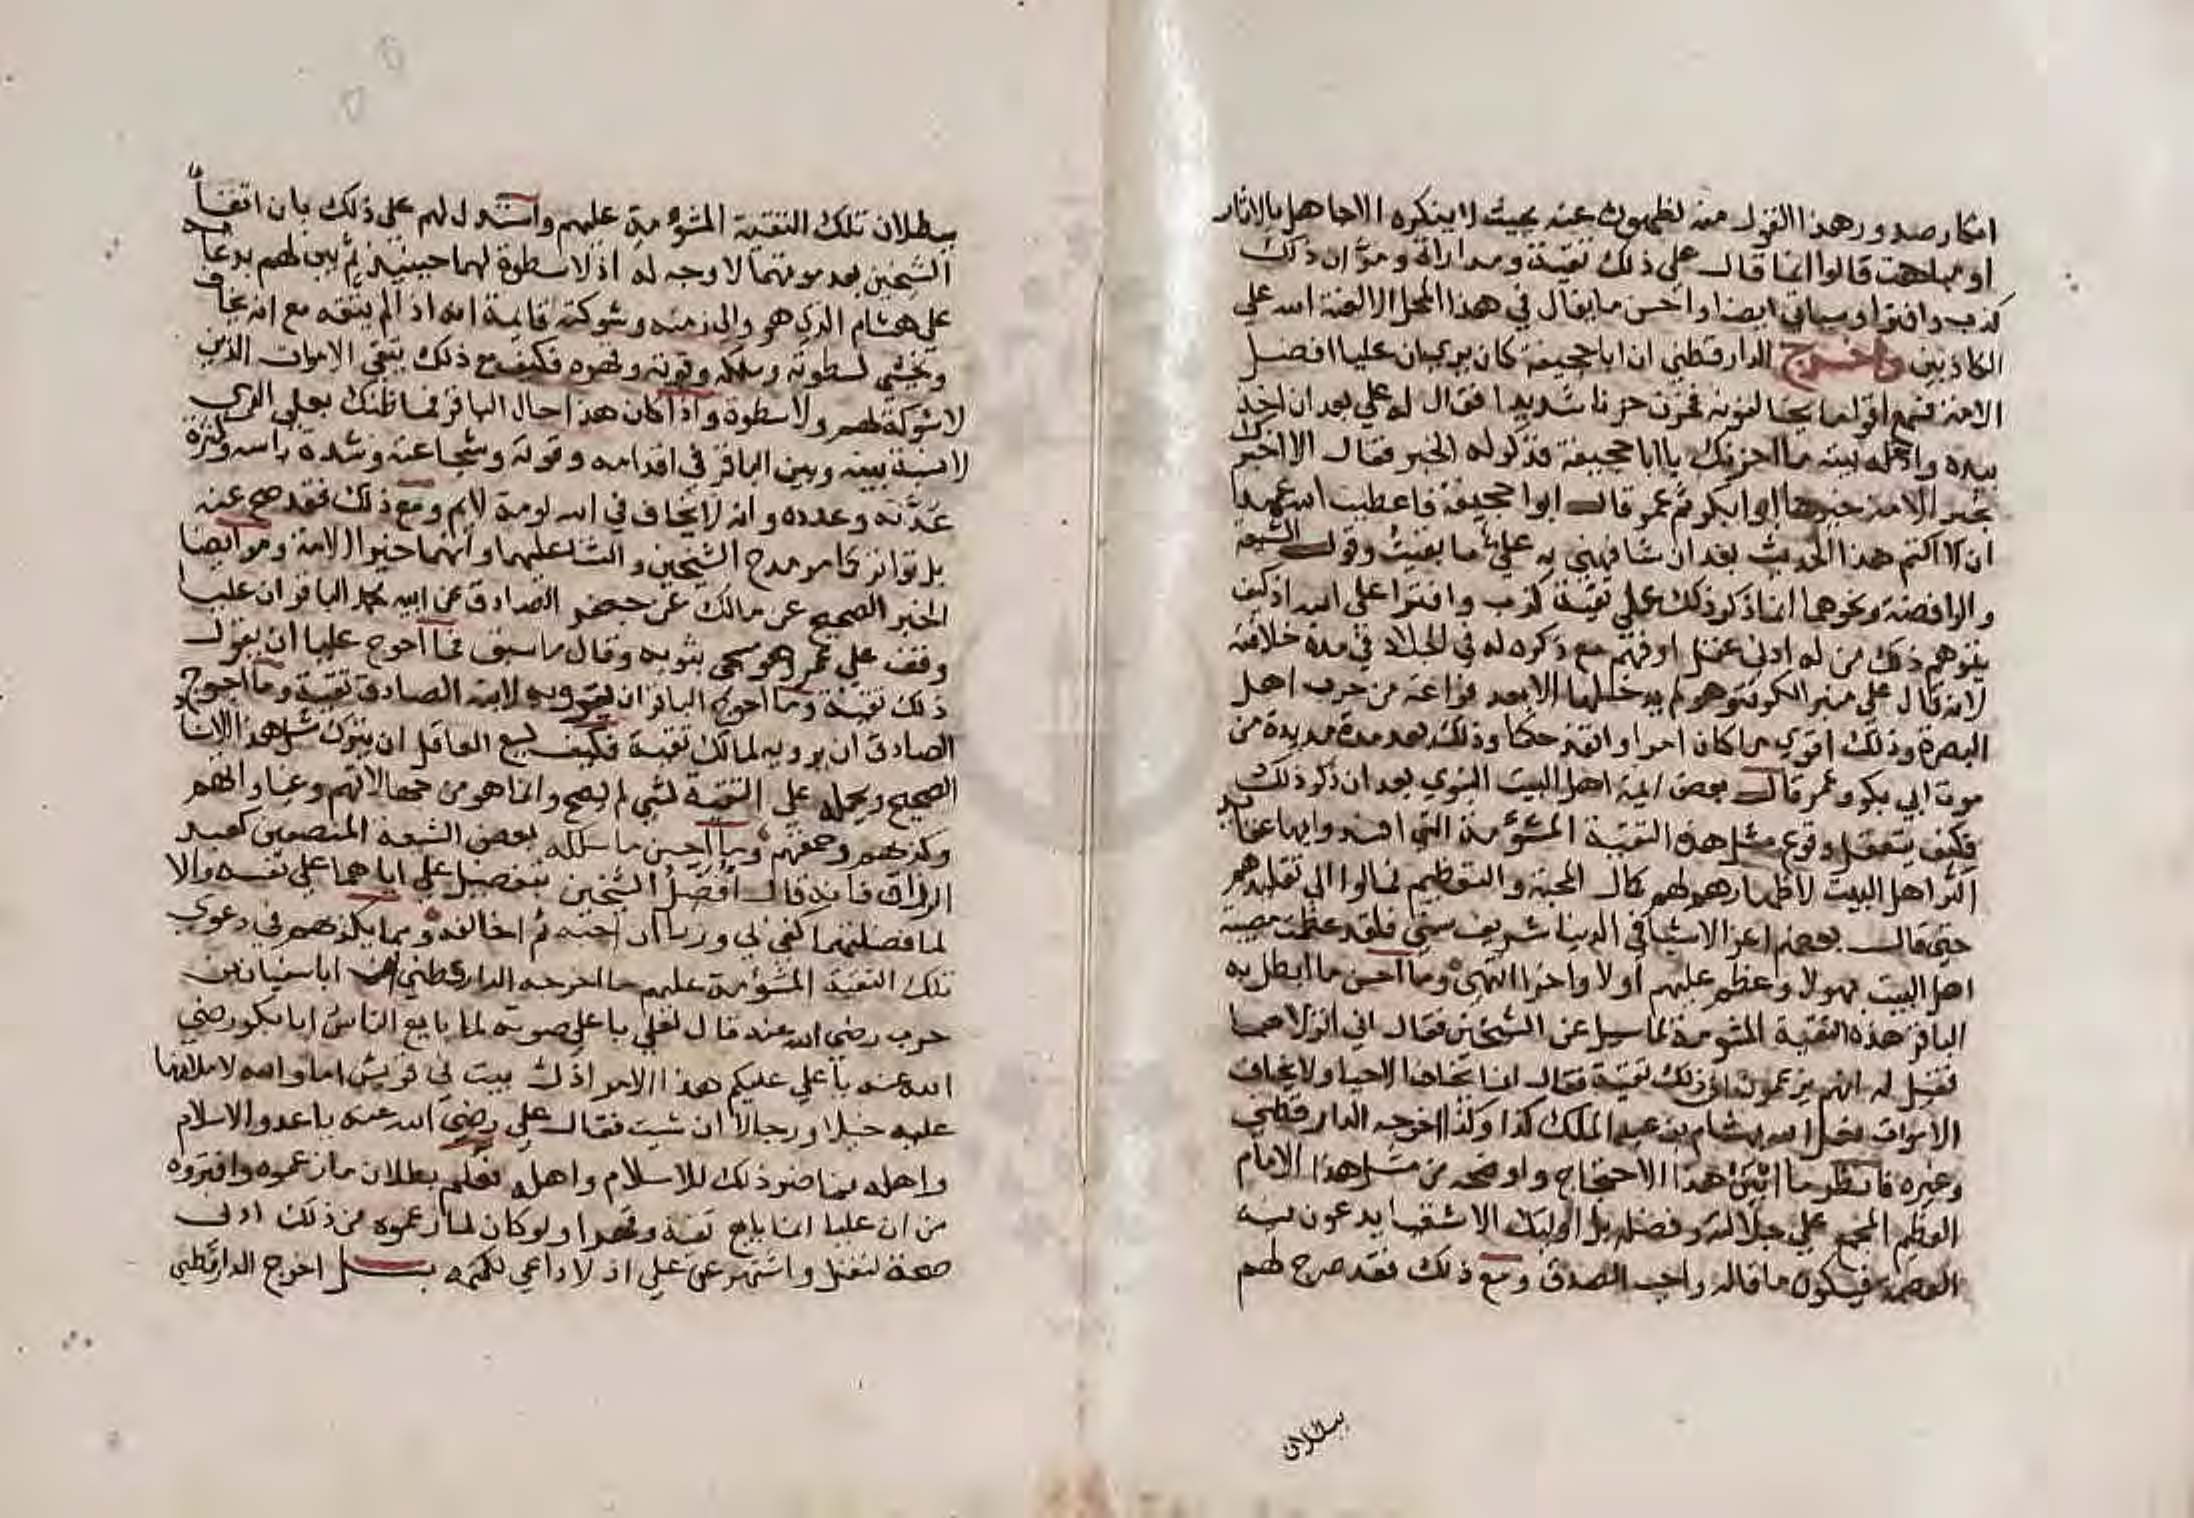 انكار صدور هذا القول منه لظهوره عنه بحيث لا ينكره الا جاهل بالاثار
او مباهت قالوا انما قال علي ذلك تقية ومداراة ومر ان ذلك
كذب وافترا وسياتي ايضا واحسن ما يقال في هذا المحل الا لعنة الله علي
الكاذبين واخرج الدارقطني ان ابا جحيفة كان يري ان عليا افضل
الامة فسمع اقواما يخالفونه فحزن حزنا شديدا فقال له علي بعد ان اخذ
بيده وادخله بيته ما احزنك يا ابا جحيفة فذكر له الخبر فقال الا اخبرك
بخير الامة خيرها ابو بكر ثم عمر قال ابو جحيفة فاعطيت الله عهدا
ان لا اكتم هذا الحديث بعد ان شافهني به علي ما بقيت وقول الشيعة
والرافضة ونحوهما انما ذكر ذلك علي تقية كذب وافترا علي الله اذ كيف
يتوهم ذلك من له ادني عقل او فهم مع ذكره له في الخلا في مدة خلافته
لانه قال علي منبر الكوفة وهو لم يدخلها الا بعد فراغه من حرب اهل
البصرة وذلك اقوي ما كان امرا وانفذ حكما وذلك بعد مدة مديدة من
موت ابي بكر وعمر قال بعض ايمة اهل البيت النبوي بعد ان ذكر ذلك
فكيف يتعقل وقوع مثل هذه التقية المشؤمة التي افسدوا بها عقايد
اكثر اهل البيت لاظهارهم لهم كمال المحبة والتعظيم فمالوا الي تقليدهم
حتي قال بعضهم اعز الاشيا في الدنيا شريف سني فلقد عظمت مصيبة
اهل البيت بهولا وعظم عليهم اولا واخرا انتهي وما احسن ما ابطل به
الباقر هذه التقية المشومة لما سيل عن الشيخين فقال اني اتولاهما
فقيل له انهم يزعمون ان ذلك تقية فقال انما يخاف الاحيا ولا يخاف
الاموات فعل الله بهشام بن عبد الملك كذا وكذا اخرجه الدارقطني
وغيره فانظر ما ابين هذا الاحتجاج واوضحه من مثل هذا الامام
العظيم المجمع علي جلالته وفضله بل اوليك الاشقيا يدعون فيه
العصمة فيكون ما قاله واجب الصدق ومع ذلك فقد صرح لهم
ببطلان
ببطلان تلك التقية المشؤمة عليهم واستدل لهم علي ذلك بان اتقا
الشيخين بعد موتهما لا وجه له اذ لا سطوة لهما حينيذ ثم بين لهم بدعايه
علي هشام الذي هو والي زمنه وشوكته قايمة انه اذا لم يتقه مع انه يخاف
ويخشي لسطوته وملكه وقوته وقهره فكيف مع ذلك يتقي الاموات الذين
لا شوكة لهم ولا سطوة واذا كان هذا حال الباقر فما ظنك بعلي الذي
لا نسبة بينه وبين الباقر في اقدامه وقوته وشجاعته وشدة باسه وكثرة
عدته وعدده وانه لا يخاف في الله لومة لايم ومع ذلك فقد صح عنه
بل تواتر كما مر مدح الشيخين والثنا عليهما وانهما خير الامة ومر ايضا
الخبر الصحيح عن مالك عن جعفر الصادق عن ابيه محمد الباقر ان عليا
وقف علي عمر وهو مسجي بثوبه وقال ما سبق فما احوج عليا ان يقول
ذلك تقية وما احوج الباقر ان يرويه لابنه الصادق تقية وما احوج
الصادق ان يرويه لمالك تقية فكيف يسع العاقل ان يترك مثل هذا الاسناد
الصحيح ويحمله علي التقية لشي لم يصح وانما هو من جهالاتهم وغباوتهم
وكذبهم وحمقهم وما احسن ما سلكه بعض الشيعة المنصفين كعبد
الرزاق فانه قال افضل الشيخين بتفضيل علي اياهما علي نفسه والا
لما فضلتهما كفي بي وزرا ان احبه ثم اخالفه ومما يكذبهم في دعوي
تلك التقية المشؤمة عليهم ما اخرجه الدارقطني ان ابا سفيان بن
حرب رضي الله عنه قال لعلي باعلي صوته لما بايع الناس ابا بكر رضي
الله عنه يا علي غلبكم هذا الامر اذل بيت في قريش اما والله لاملانها
عليه خيلا ورجالا ان شيت فقال علي رضي الله عنه يا عدو الاسلام
واهله فما ضر ذلك للاسلام واهله فعلم بطلان ما زعموه وافتروه
من ان عليا انما بايع تقية وقهرا ولو كان لما زعموه من ذلك ادني
صحة لنقل واشتهر عن علي اذ لا داعي لكتمه بل اخرج الدارقطني